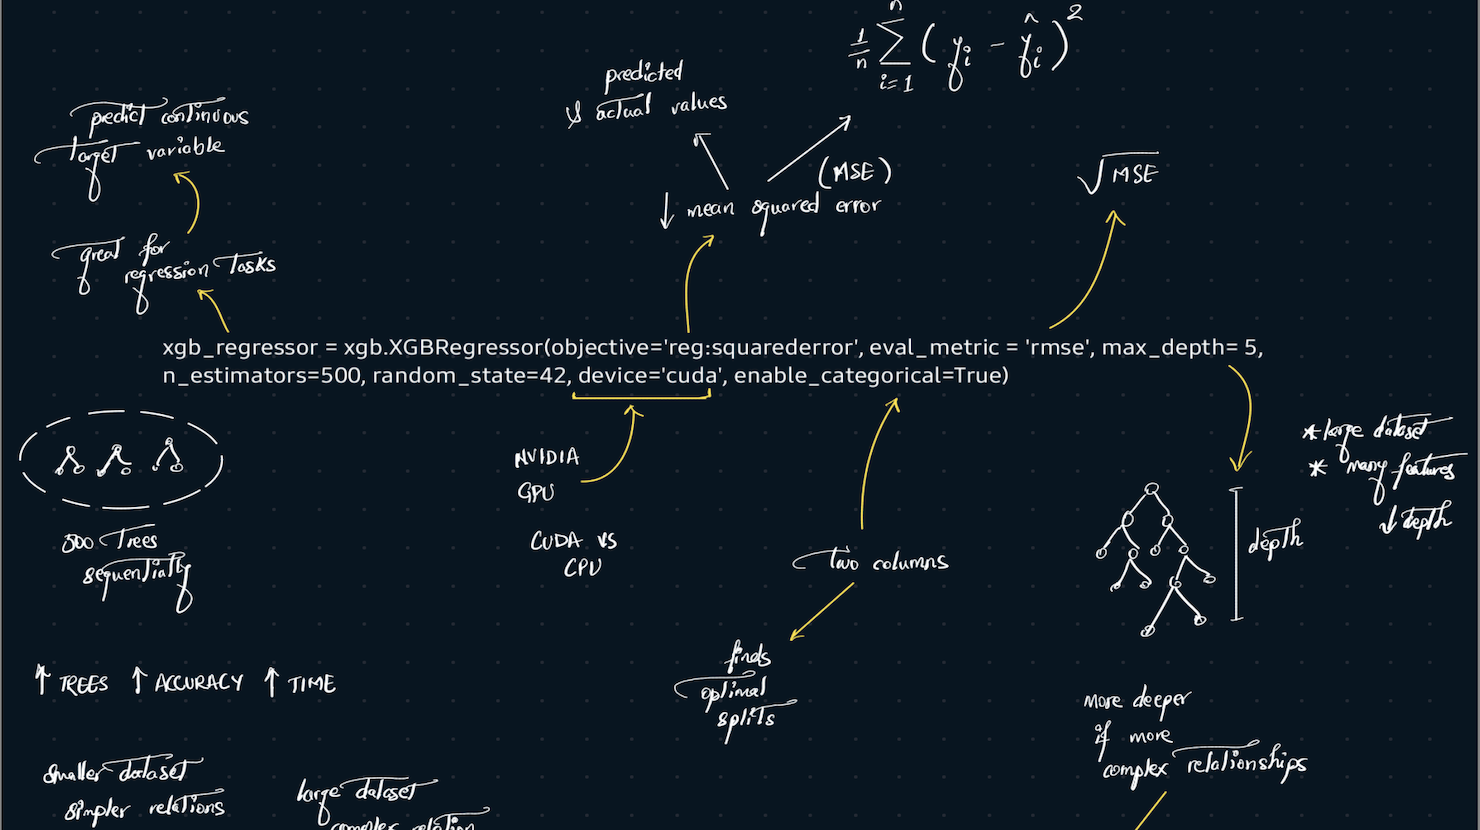 n
1/n Σ ( yi - ŷi )²
i=1
predicted
& actual values
predict continuous
target variable
(MSE)
↓ mean squared error
√MSE
great for
regression tasks
xgb_regressor = xgb.XGBRegressor(objective='reg:squarederror', eval_metric = 'rmse', max_depth= 5,
n_estimators=500, random_state=42, device='cuda', enable_categorical=True)
* large dataset
* many features
↓ depth
NVIDIA
GPU
CUDA vs
CPU
500 Trees
sequentially
two columns
depth
finds
optimal
splits
↑ TREES ↑ ACCURACY ↑ TIME
more deeper
if more
complex relationships
smaller dataset
simpler relations
large dataset
complex relation